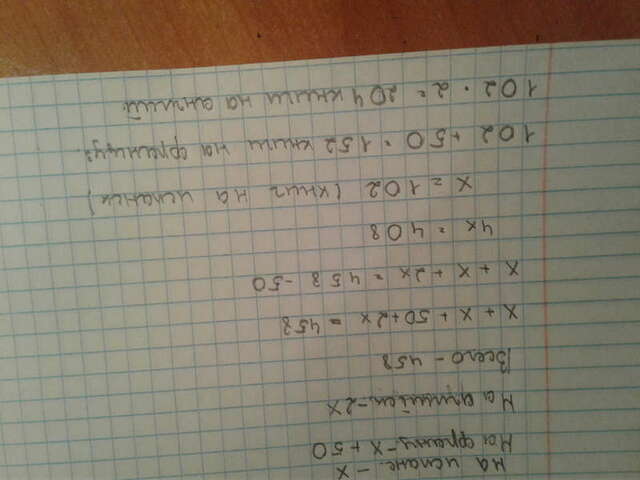 На испанс. - x
На францу - x + 50
На английск - 2x
Всего - 458
x + x + 50 + 2x = 458
x + x + 2x = 458 - 50
4x = 408
x = 102 (книг на испанск)
102 + 50 = 152 книги на француз.
102 · 2 = 204 книги на английй